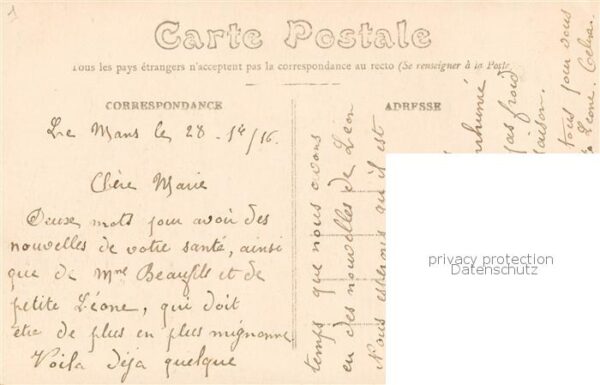 1
Carte Postale
Tous les pays étrangers n'acceptent pas la correspondance au recto (Se renseigner à la Poste
CORRESPONDANCE
ADRESSE
Le Mans le 28
Chère Marie
Deux mots pour avoir des
nouvelles de votre santé, ainsi
que de Mme Beaufils et de
petite Léone, qui doit
être de plus en plus mignonne
Voilà déja quelque
temps que nous avons
en des nouvelles de Léon
Nous esperons qu'il est
enrhumé
pas froid
maison.
tous pour vous
Léone.
privacy protection
Datenschutz